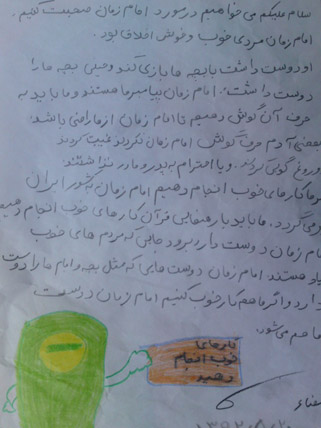 سلام علیکم می خواهیم در مورد امام زمان صحبت کنیم.
امام زمان مردی خوب و خوش اخلاق بود.
او دوست داشت با بچه ها بازی کند و خیلی بچه ها را
دوست داشت. امام زمان پیامبر ما هستند و ما باید به
حرف آن گوش دهیم تا امام زمان از ما راضی باشد.
بعضی آدم حرف گوش امام زمان نکردند غیبت کردند
دروغ گویی کردند. و یا احترام به پدر و مادر نداشتند.
ما کارهای خوب انجام دهیم امام زمان به کشور ایران
بر می گردد. ما باید با رهنمایی قرآن کارهای خوب انجام دهیم
امام زمان دوست دارد برود جایی که مردم های خوب
زیاد هستند. امام زمان دوست هایی که مثل بچه و امام ما را دوست
دارد و اگر ما هم کار خوب کنیم امام زمان دوست
ما هم می شود.
کارهای
خوب انجام
دهید